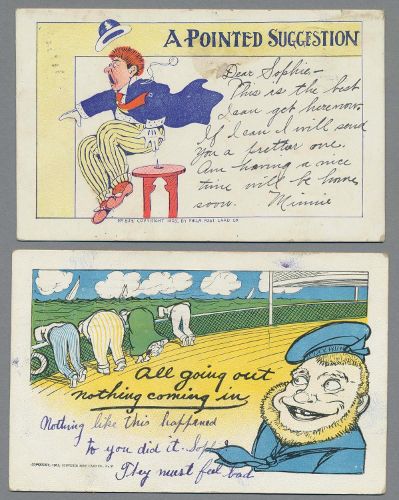 A POINTED SUGGESTION
Dear Sophie—
This is the best
I can get here now.
If I can I will send
you a prettier one.
Am having a nice
time will be home
soon. Minnie
COPYRIGHT 1905, BY FRANZ HULD CARD CO
All going out
nothing coming in
Nothing like this happened
to you did it. Sophie
They must feel bad
COPYRIGHT,